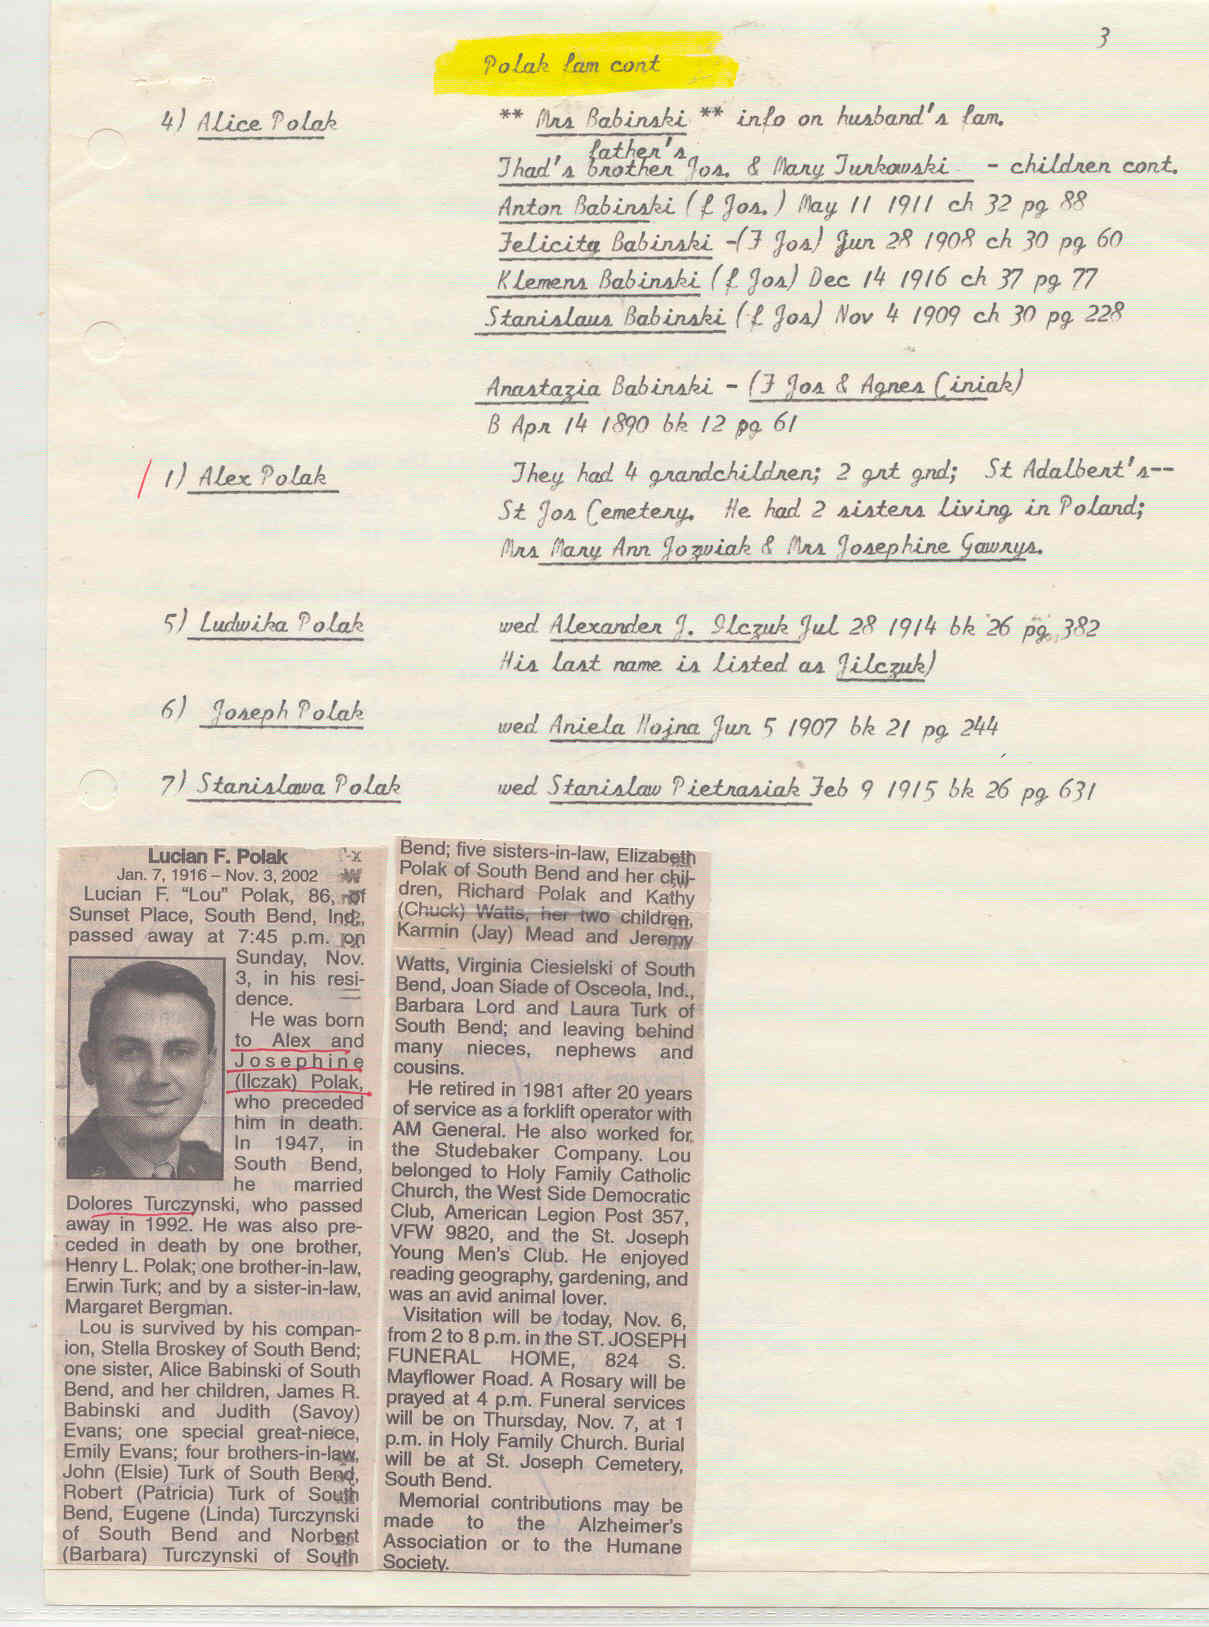 3
Polak fam cont
4) Alice Polak ** Mrs Babinski ** info on husband's fam.
father's
Thad's brother Jos. & Mary Turkowski - children cont.
Anton Babinski (f Jos.) May 11 1911 ch 32 pg 88
Felicita Babinski -(F Jos) Jun 28 1908 ch 30 pg 60
Klemens Babinski (f Jos) Dec 14 1916 ch 37 pg 77
Stanislaus Babinski (f Jos) Nov 4 1909 ch 30 pg 228
Anastazia Babinski - (F Jos & Agnes Ciniak)
B Apr 14 1890 bk 12 pg 61
/ 1) Alex Polak They had 4 grandchildren; 2 grt gnd; St Adalbert's--
St Jos Cemetery. He had 2 sisters living in Poland;
Mrs Mary Ann Jozwiak & Mrs Josephine Gawrys.
5) Ludwika Polak wed Alexander J. Ilczuk Jul 28 1914 bk 26 pg 382
His last name is listed as Jilczuk)
6) Joseph Polak wed Aniela Hojna Jun 5 1907 bk 21 pg 244
7) Stanislawa Polak wed Stanislaw Pietrasiak Feb 9 1915 bk 26 pg 631
Lucian F. Polak
Jan. 7, 1916 – Nov. 3, 2002
Lucian F. “Lou” Polak, 86, of
Sunset Place, South Bend, Ind.,
passed away at 7:45 p.m. on
Sunday, Nov.
3, in his resi-
dence.
He was born
to Alex and
Josephine
(Ilczak) Polak,
who preceded
him in death.
In 1947, in
South Bend,
he married
Dolores Turczynski, who passed
away in 1992. He was also pre-
ceded in death by one brother,
Henry L. Polak; one brother-in-law,
Erwin Turk; and by a sister-in-law,
Margaret Bergman.
Lou is survived by his compan-
ion, Stella Broskey of South Bend;
one sister, Alice Babinski of South
Bend, and her children, James R.
Babinski and Judith (Savoy)
Evans; one special great-niece,
Emily Evans; four brothers-in-law,
John (Elsie) Turk of South Bend,
Robert (Patricia) Turk of South
Bend, Eugene (Linda) Turczynski
of South Bend and Norbert
(Barbara) Turczynski of South
Bend; five sisters-in-law, Elizabeth
Polak of South Bend and her chil-
dren, Richard Polak and Kathy
(Chuck) Watts, her two children,
Karmin (Jay) Mead and Jeremy
Watts, Virginia Ciesielski of South
Bend, Joan Siade of Osceola, Ind.,
Barbara Lord and Laura Turk of
South Bend; and leaving behind
many nieces, nephews and
cousins.
He retired in 1981 after 20 years
of service as a forklift operator with
AM General. He also worked for
the Studebaker Company. Lou
belonged to Holy Family Catholic
Church, the West Side Democratic
Club, American Legion Post 357,
VFW 9820, and the St. Joseph
Young Men's Club. He enjoyed
reading geography, gardening, and
was an avid animal lover.
Visitation will be today, Nov. 6,
from 2 to 8 p.m. in the ST. JOSEPH
FUNERAL HOME, 824 S.
Mayflower Road. A Rosary will be
prayed at 4 p.m. Funeral services
will be on Thursday, Nov. 7, at 1
p.m. in Holy Family Church. Burial
will be at St. Joseph Cemetery,
South Bend.
Memorial contributions may be
made to the Alzheimer's
Association or to the Humane
Society.